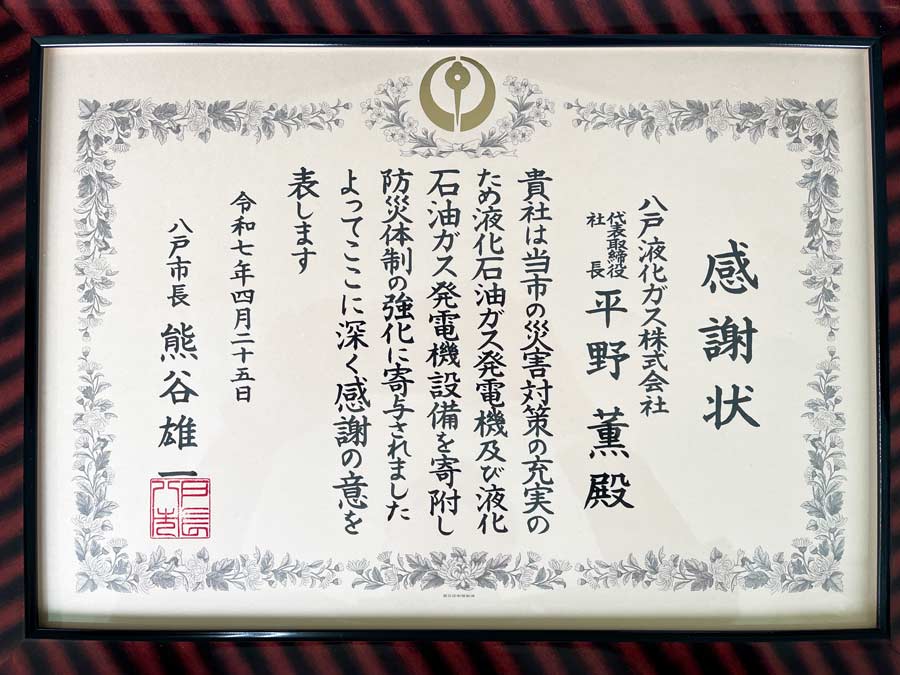 感謝状
八戸液化ガス株式会社
代表取締役
社長
平野薫殿
貴社は当市の災害対策の充実の
ため液化石油ガス発電機及び液化
石油ガス発電機設備を寄附し
防災体制の強化に寄与されました
よってここに深く感謝の意を
表します
令和七年四月二十五日
八戸市長 熊谷雄一